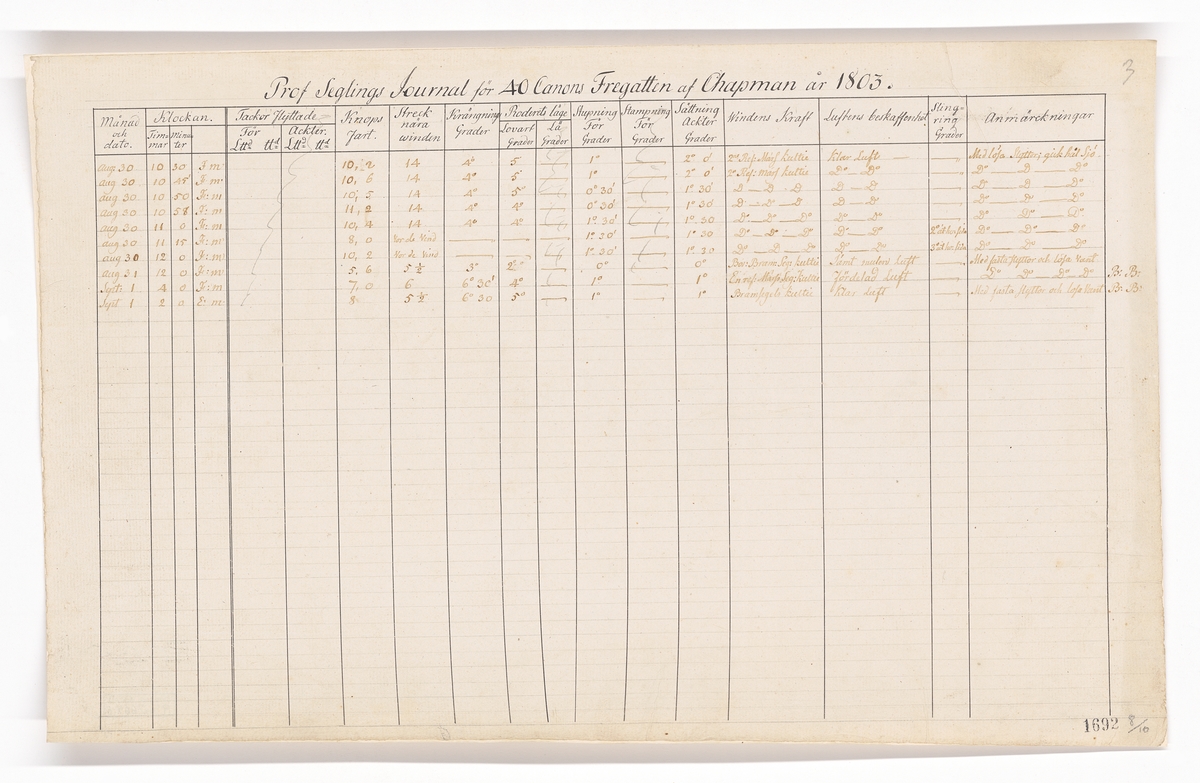 3
Prof Seglings Journal för 40 Canons Fregatten af Chapman år 1803.
Månad och dato. Klockan. Timmar Minuter Tackor flyttade För Ltt Ackter Ltt Knops fart. Streck nära winden Krängning Grader Roderets läge Lovart Grader Lä Grader Stupning För Grader Stampning För Grader Sättning Ackter Grader Vindens Kraft Luftens beskaffenhet Grader Anmärckningar
Aug 30 10 30 F: m: 10, 14 4° 5° 1° 2° 0' Klar Luft Med lösa
Aug 30 10 45 F: m: 10, 6 14 4° 5 1° 2° 0' D° D°
Aug 30 10 50 F: m: 10, 5 14 4° 5° 0° 30' 1° 30' D D D D D D D D°
Aug 30 10 58 F: m: 11, 2 14 4° 4° 0° 30' 1° 30' D D D D D D D D°
Aug 30 11 0 F: m 10, 4 14 4° 4° 1° 30' 1° 30 D° D° D° D D° D° D D°
Aug 30 11 15 F: m: 8, 0 för de Vind 1° 30' 1° 30 D° D° D° D D° D° D D°
Aug 30 12 0 F: m: 10, 2 för de Vind 1° 30' 1° 30 D° D° D° D D° D° D° D°
Aug 31 12 0 5, 6 5 ½ 3° 2° 0° 0° Luft Med fasta Stöttor och lösa Vant
Sept: 1 4 0 F: m 7, 0 6 6° 30' 4° 1° 1° Luft D° D° D° D° Br: Br:
Sept 2 0 E: m: 8 5 ½ 6° 30 5° 1° 1° Bramsegels Kultie Klar Luft Med fasta Stöttor och lösa Vant Br: Br:
1692 8/10